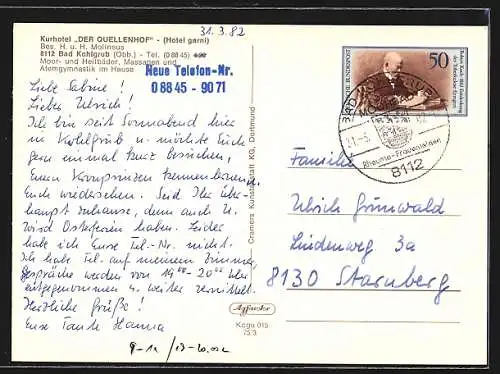 31.3.82
Kurhotel „DER QUELLENHOF“ - (Hotel garni)
Bes. H. u. H. Molineus
8112 Bad Kohlgrub (Obb.) - Tel. (08845)
Moor- und Heilbäder, Massagen und
Atemgymnastik im Hause
Neue Telefon-Nr.
0 88 45 - 90 71
Liebe Sabine!
Lieber Ulrich!
Ich bin seit Sonnabend hier
in Kohlgrub u. möchte Euch
gern einmal kurz besuchen,
Euren Kronprinzen kennenlernen
Euch wiedersehen. Seid Ihr über-
haupt zuhause, denn auch U.
wird Osterferien haben. Leider
habe ich Eure Tel-Nr. nicht.
Ich habe Tel. auf meinem Zimmer,
gespräche werden von 19⁰⁰-20⁰⁰ Uhr
entgegengenommen u. weiter vermittelt.
Herzliche Grüße!
Eure Tante Hanna
9-12 /
Cramers Kunstanstalt KG, Dortmund
Kogo 015
75/3
DEUTSCHE BUNDESPOST
50
Robert Koch 100
8112
Familie
Ulrich Grunwald
Lindenweg 3a
8130 Starnberg